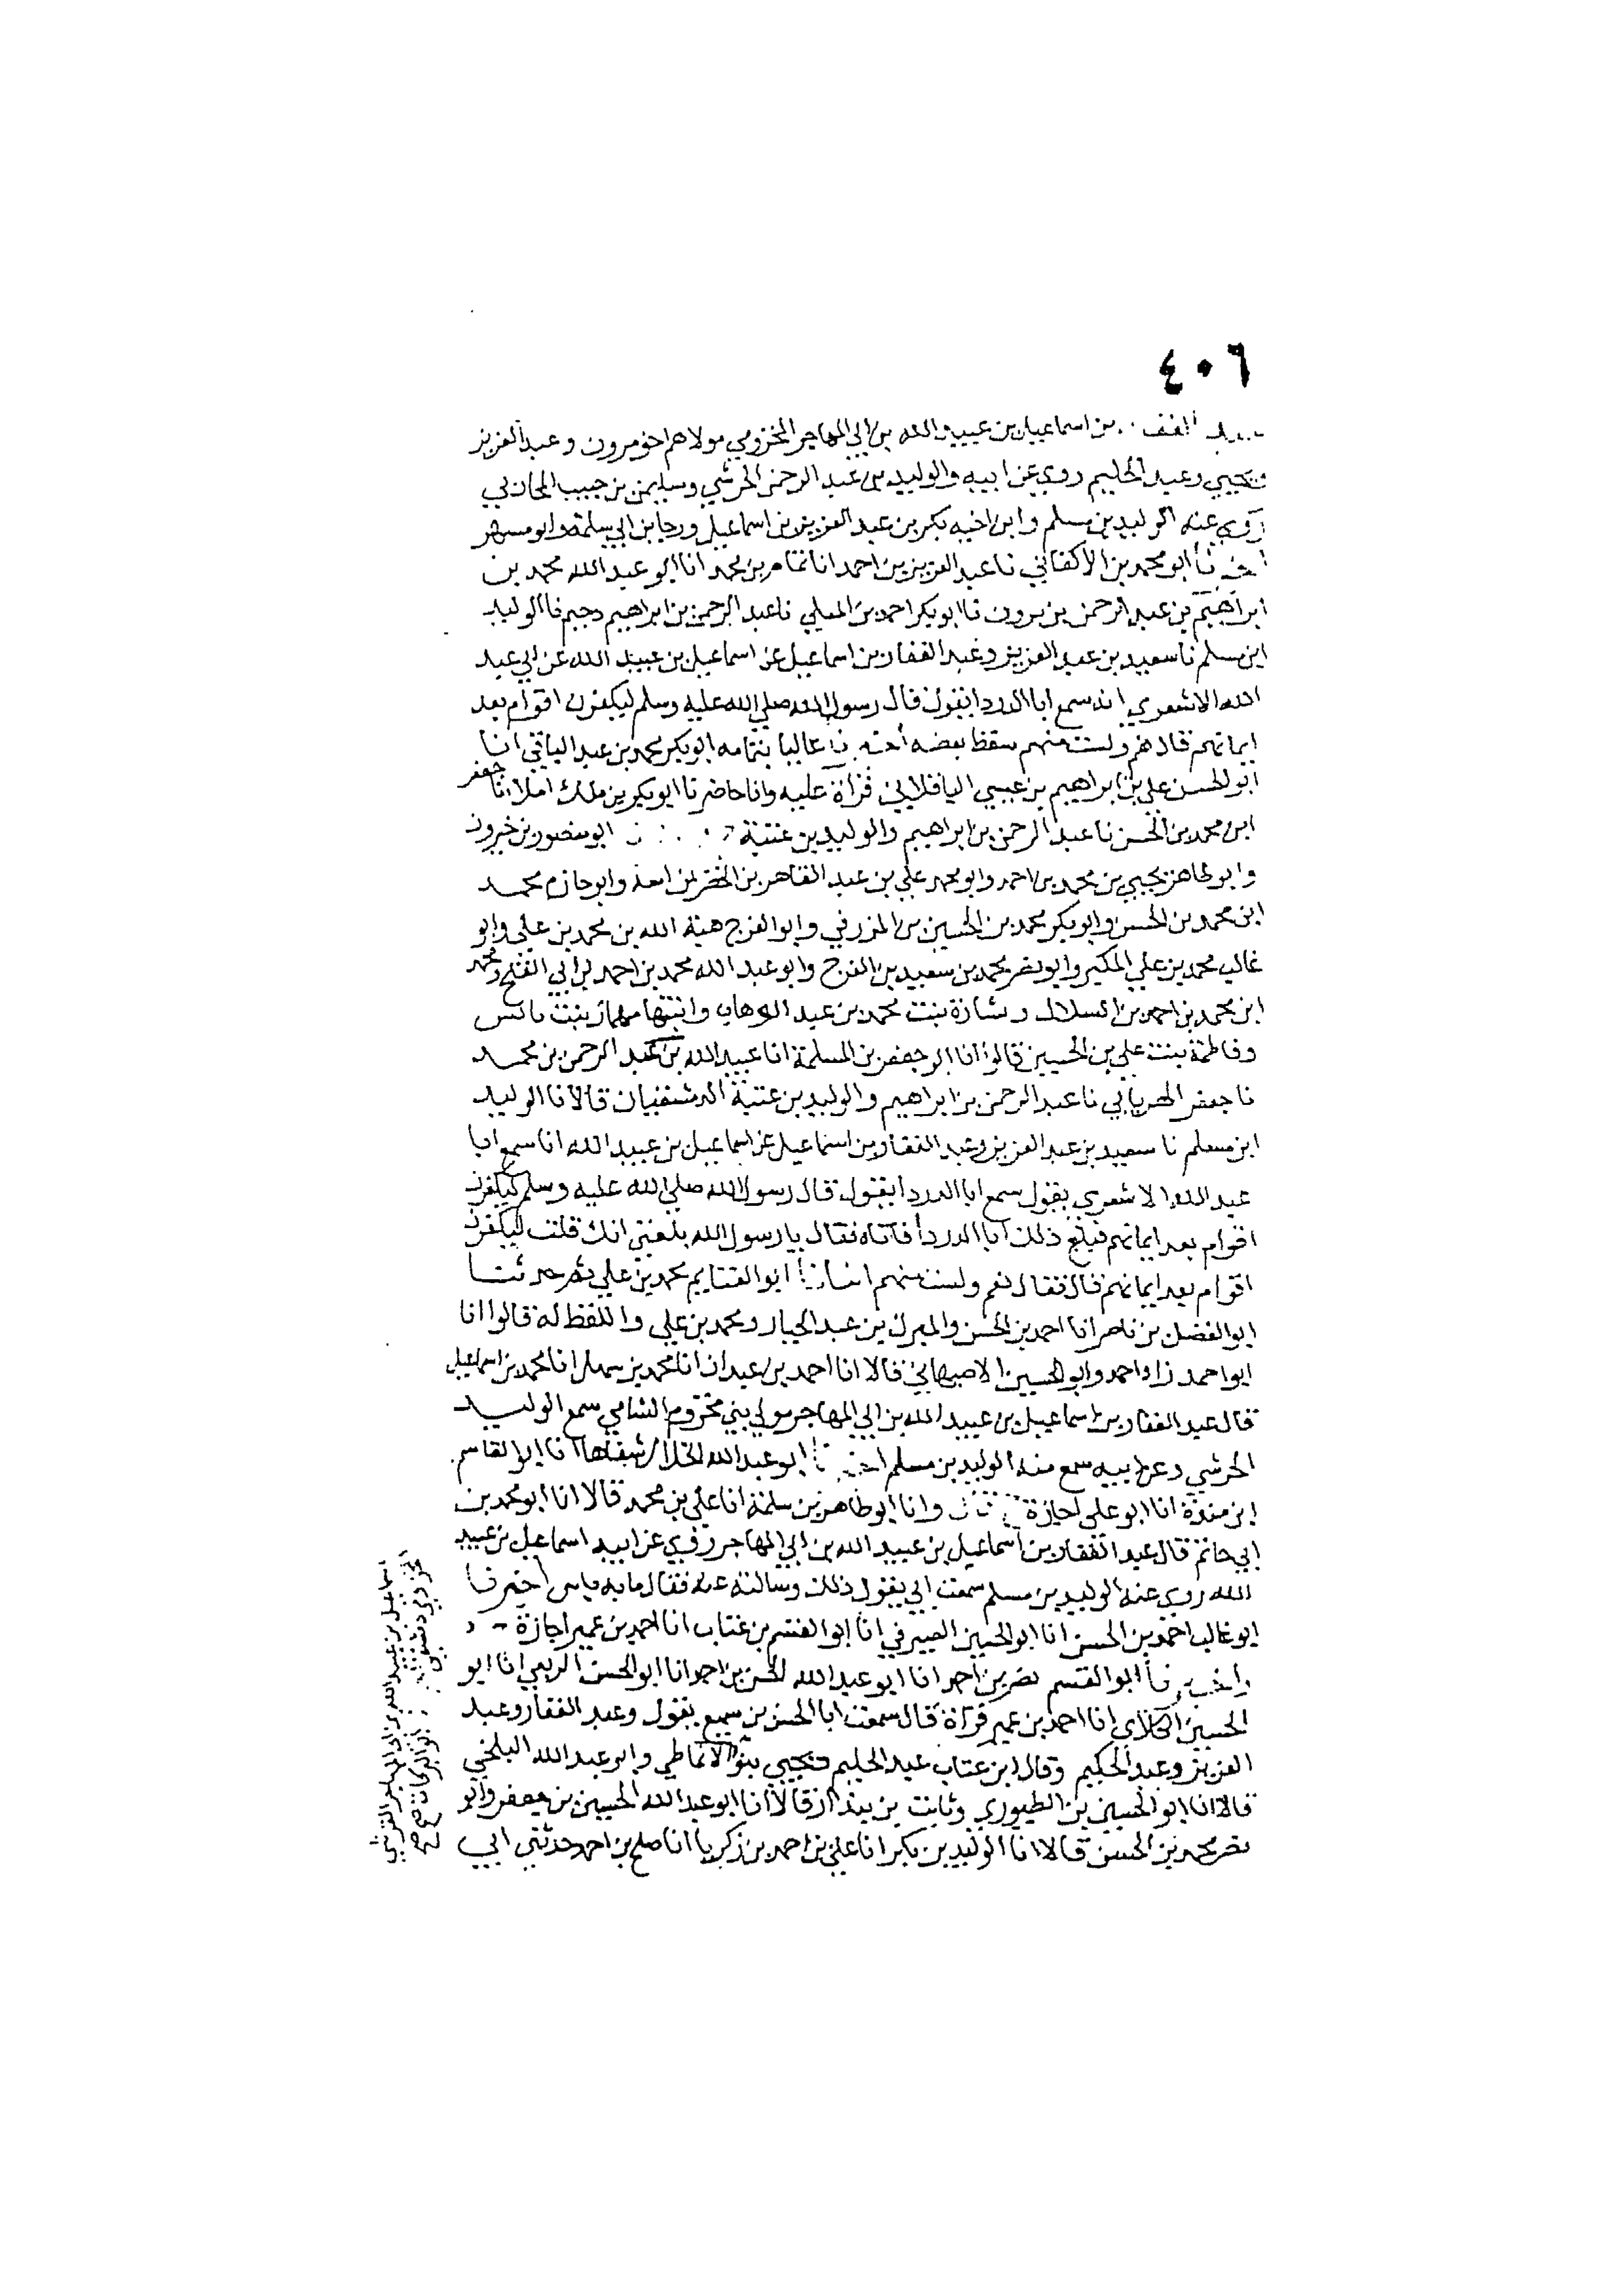 ٤٠٦
عبد الغفار بن اسماعيل بن عبيد الله بن ابي المهاجر المخزومي مولاهم اخو مروان وعبد العزيز
ويحيي وعبد الحليم روي عن ابيه والوليد بن عبد الرحمن الجرشي وسليمن بن حبيب المحاربي
روي عنه الوليد بن مسلم وابن اخيه بكر بن عبد العزيز بن اسماعيل ورجا بن ابي سلمة وابو مسهر
اخبرنا ابو محمد بن الاكفاني نا عبد العزيز بن احمد انا تمام بن محمد انا ابو عبد الله محمد بن
ابراهيم بن عبد الرحمن بن مروان نا ابو بكر احمد بن المعلي نا عبد الرحمن بن ابراهيم دحيم نا الوليد
ابن مسلم نا سعيد بن عبد العزيز وعبد الغفار بن اسماعيل عن اسماعيل بن عبيد الله عن ابي عبد
الله الاشعري انه سمع ابا الدردا يقول قال رسول الله صلي الله عليه وسلم ليكفرن اقوام بعد
ايمانهم قال نعم ولست منهم سقط بعضه اخبرنا عاليا بتمامه ابو بكر محمد بن عبد الباقي انا
ابو الحسن علي بن ابراهيم بن عيسي الباقلاني قراة عليه وانا حاضر نا ابو بكر بن ملك املا نا جعفر
ابن محمد بن الحسن نا عبد الرحمن بن ابراهيم والوليد بن عتبة ابو منصور بن خيرون
وابو طاهر يحيي بن محمد بن احمد وابو محمد علي بن عبد القاهر بن الخضر بن اسد وابو حازم محمد
ابن محمد بن الحسن وابو بكر محمد بن الحسين بن المزرفي وابو الفرج هبة الله بن محمد بن علي وابو
غالب محمد بن علي المكبر وابو نصر محمد بن سعيد بن الفرج وابو عبد الله محمد بن احمد بن ابي الفتح ومحمد
ابن محمد بن احمد بن السلال وبشارة بنت محمد بن عبد الوهاب وابنتها مهناز بنت يانس
وفاطمة بنت علي بن الحسين قالوا انا ابو جعفر بن المسلمة انا عبيد الله بن عبد الرحمن بن محمد
نا جعفر الفريابي نا عبد الرحمن بن ابراهيم والوليد بن عتبة الدمشقيان قالا نا الوليد
ابن مسلم نا سعيد بن عبد العزيز وعبد الغفار بن اسماعيل عن اسماعيل بن عبيد الله انا سمع ابا
عبد الله الاشعري يقول سمع ابا الدردا يقول قال رسول الله صلي الله عليه وسلم ليكفرن
اقوام بعد ايمانهم فبلغ ذلك ابا الدردا فاتاه فقال يا رسول الله بلغني انك قلت ليكفرن
اقوام بعد ايمانهم قال فقال نعم ولست منهم انبانا ابو الغنايم محمد بن علي ثم حدثنا
ابو الفضل بن ناصر انا احمد بن الحسن والمبرك بن عبد الجبار ومحمد بن علي واللفظ له قالوا انا
ابو احمد زاد احمد وابو الحسين الاصبهاني قالا انا احمد بن عبدان انا محمد بن سهل انا محمد بن اسماعيل
قال عبد الغفار بن اسماعيل بن عبيد الله بن ابي المهاجر مولي بني مخزوم الشامي سمع الوليد
الجرشي وعن ابيه سمع منه الوليد بن مسلم اخبرنا ابو عبد الله الخلال شفاها انا ابو القاسم
ابن مندة انا ابو علي اجازة قال وانا ابو طاهر بن سلمة انا علي بن محمد قالا انا ابو محمد بن
ابي حاتم قال عبد الغفار بن اسماعيل بن عبيد الله بن ابي المهاجر روي عن ابيه اسماعيل بن عبيد
الله روي عنه الوليد بن مسلم سمعت ابي يقول ذلك وسالته عنه فقال ما به باس اخبرنا
ابو غالب احمد بن الحسن انا ابو الحسين الصيرفي انا ابو القسم بن عتاب انا احمد بن عمير اجازة
واخبرنا ابو القسم نصر بن احمد انا ابو عبد الله الحسن بن احمد انا ابو الحسن الربعي انا ابو
الحسين الكلابي انا احمد بن عمير قراة قال سمعت ابا الحسن بن سميع يقول وعبد الغفار وعبد
العزيز وعبد الحكيم وقال ابن عتاب عبد الحليم ويحيي بنو الانماطي وابو عبد الله البلخي
قالا انا ابو الحسين بن الطيوري وثابت بن بندار قالا انا ابو عبد الله الحسين بن جعفر وابو
نصر محمد بن الحسن قالا انا الوليد بن بكر انا علي بن احمد بن زكريا انا صلح بن احمد حدثني ابي
اسماعيل بن عبيد الله بن ابي المهاجر القرشي
ابو البركات صح صح